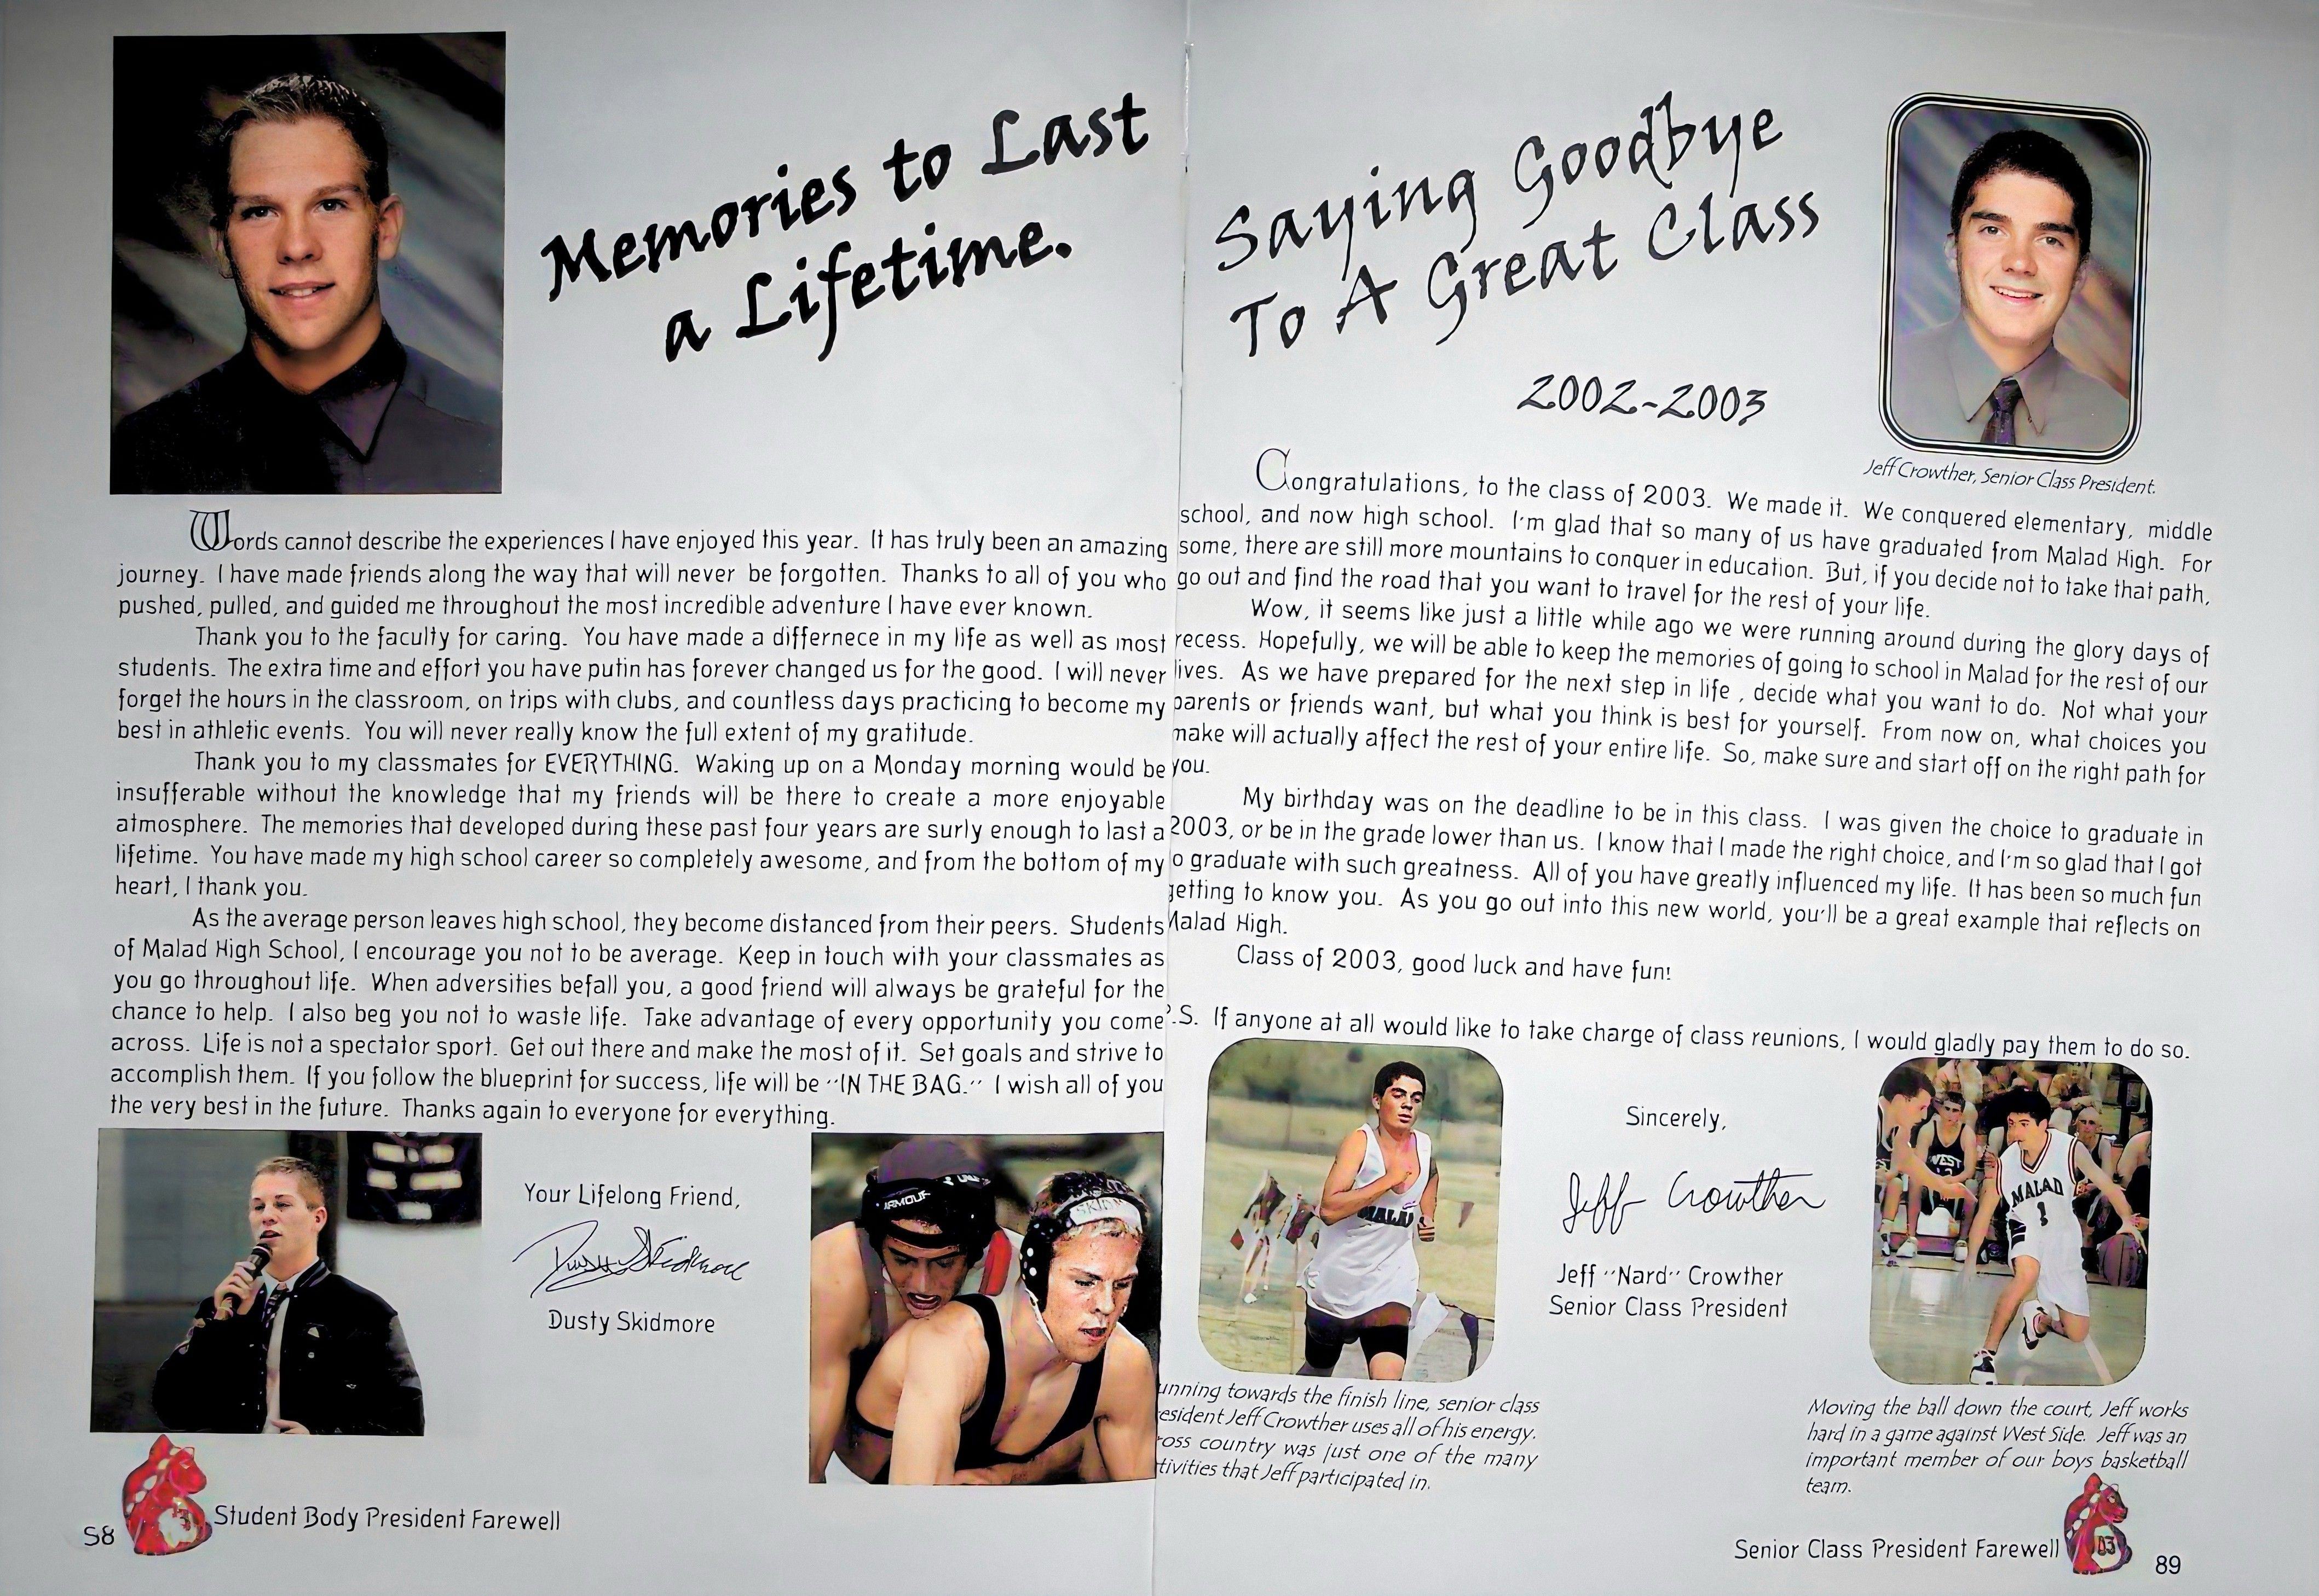 Memories to Last
a Lifetime.
Words cannot describe the experiences I have enjoyed this year. It has truly been an amazing
journey. I have made friends along the way that will never be forgotten. Thanks to all of you who
pushed, pulled, and guided me throughout the most incredible adventure I have ever known.
Thank you to the faculty for caring. You have made a differnece in my life as well as most
students. The extra time and effort you have putin has forever changed us for the good. I will never
forget the hours in the classroom, on trips with clubs, and countless days practicing to become my
best in athletic events. You will never really know the full extent of my gratitude.
Thank you to my classmates for EVERYTHING. Waking up on a Monday morning would be
insufferable without the knowledge that my friends will be there to create a more enjoyable
atmosphere. The memories that developed during these past four years are surly enough to last a
lifetime. You have made my high school career so completely awesome, and from the bottom of my
heart, I thank you.
As the average person leaves high school, they become distanced from their peers. Students
of Malad High School, I encourage you not to be average. Keep in touch with your classmates as
you go throughout life. When adversities befall you, a good friend will always be grateful for the
chance to help. I also beg you not to waste life. Take advantage of every opportunity you come
across. Life is not a spectator sport. Get out there and make the most of it. Set goals and strive to
accomplish them. If you follow the blueprint for success, life will be "IN THE BAG." I wish all of you
the very best in the future. Thanks again to everyone for everything.
Your Lifelong Friend,
Dusty Skidmore
Dusty Skidmore
ARMOUR
SKIDM
S8
Student Body President Farewell
Saying Goodbye
To A Great Class
2002-2003
Jeff Crowther, Senior Class President.
Congratulations, to the class of 2003. We made it. We conquered elementary, middle
school, and now high school. I'm glad that so many of us have graduated from Malad High. For
some, there are still more mountains to conquer in education. But, if you decide not to take that path,
go out and find the road that you want to travel for the rest of your life.
Wow, it seems like just a little while ago we were running around during the glory days of
recess. Hopefully, we will be able to keep the memories of going to school in Malad for the rest of our
lives. As we have prepared for the next step in life , decide what you want to do. Not what your
parents or friends want, but what you think is best for yourself. From now on, what choices you
make will actually affect the rest of your entire life. So, make sure and start off on the right path for
you.
My birthday was on the deadline to be in this class. I was given the choice to graduate in
2003, or be in the grade lower than us. I know that I made the right choice, and I'm so glad that I got
o graduate with such greatness. All of you have greatly influenced my life. It has been so much fun
getting to know you. As you go out into this new world, you'll be a great example that reflects on
Malad High.
Class of 2003, good luck and have fun!
P.S. If anyone at all would like to take charge of class reunions, I would gladly pay them to do so.
MALAD
Sincerely,
Jeff Crowther
Jeff "Nard" Crowther
Senior Class President
WEST
MALAD
1
unning towards the finish line, senior class
resident Jeff Crowther uses all of his energy.
ross country was just one of the many
tivities that Jeff participated in.
Moving the ball down the court, Jeff works
hard in a game against West Side. Jeff was an
important member of our boys basketball
team.
Senior Class President Farewell
03
89